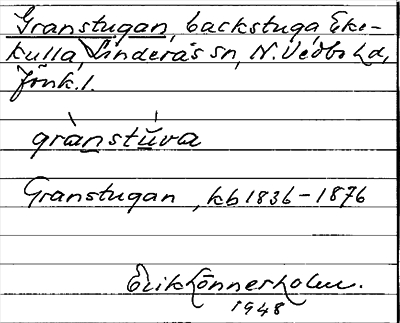 Granstugan, backstuga, Eke-
kulla, Linderås sn, N. Vedbo hd,
Jönk. l.
grànstúva
Granstugan, kb 1836-1876
Erik Lönnerholm.
1948